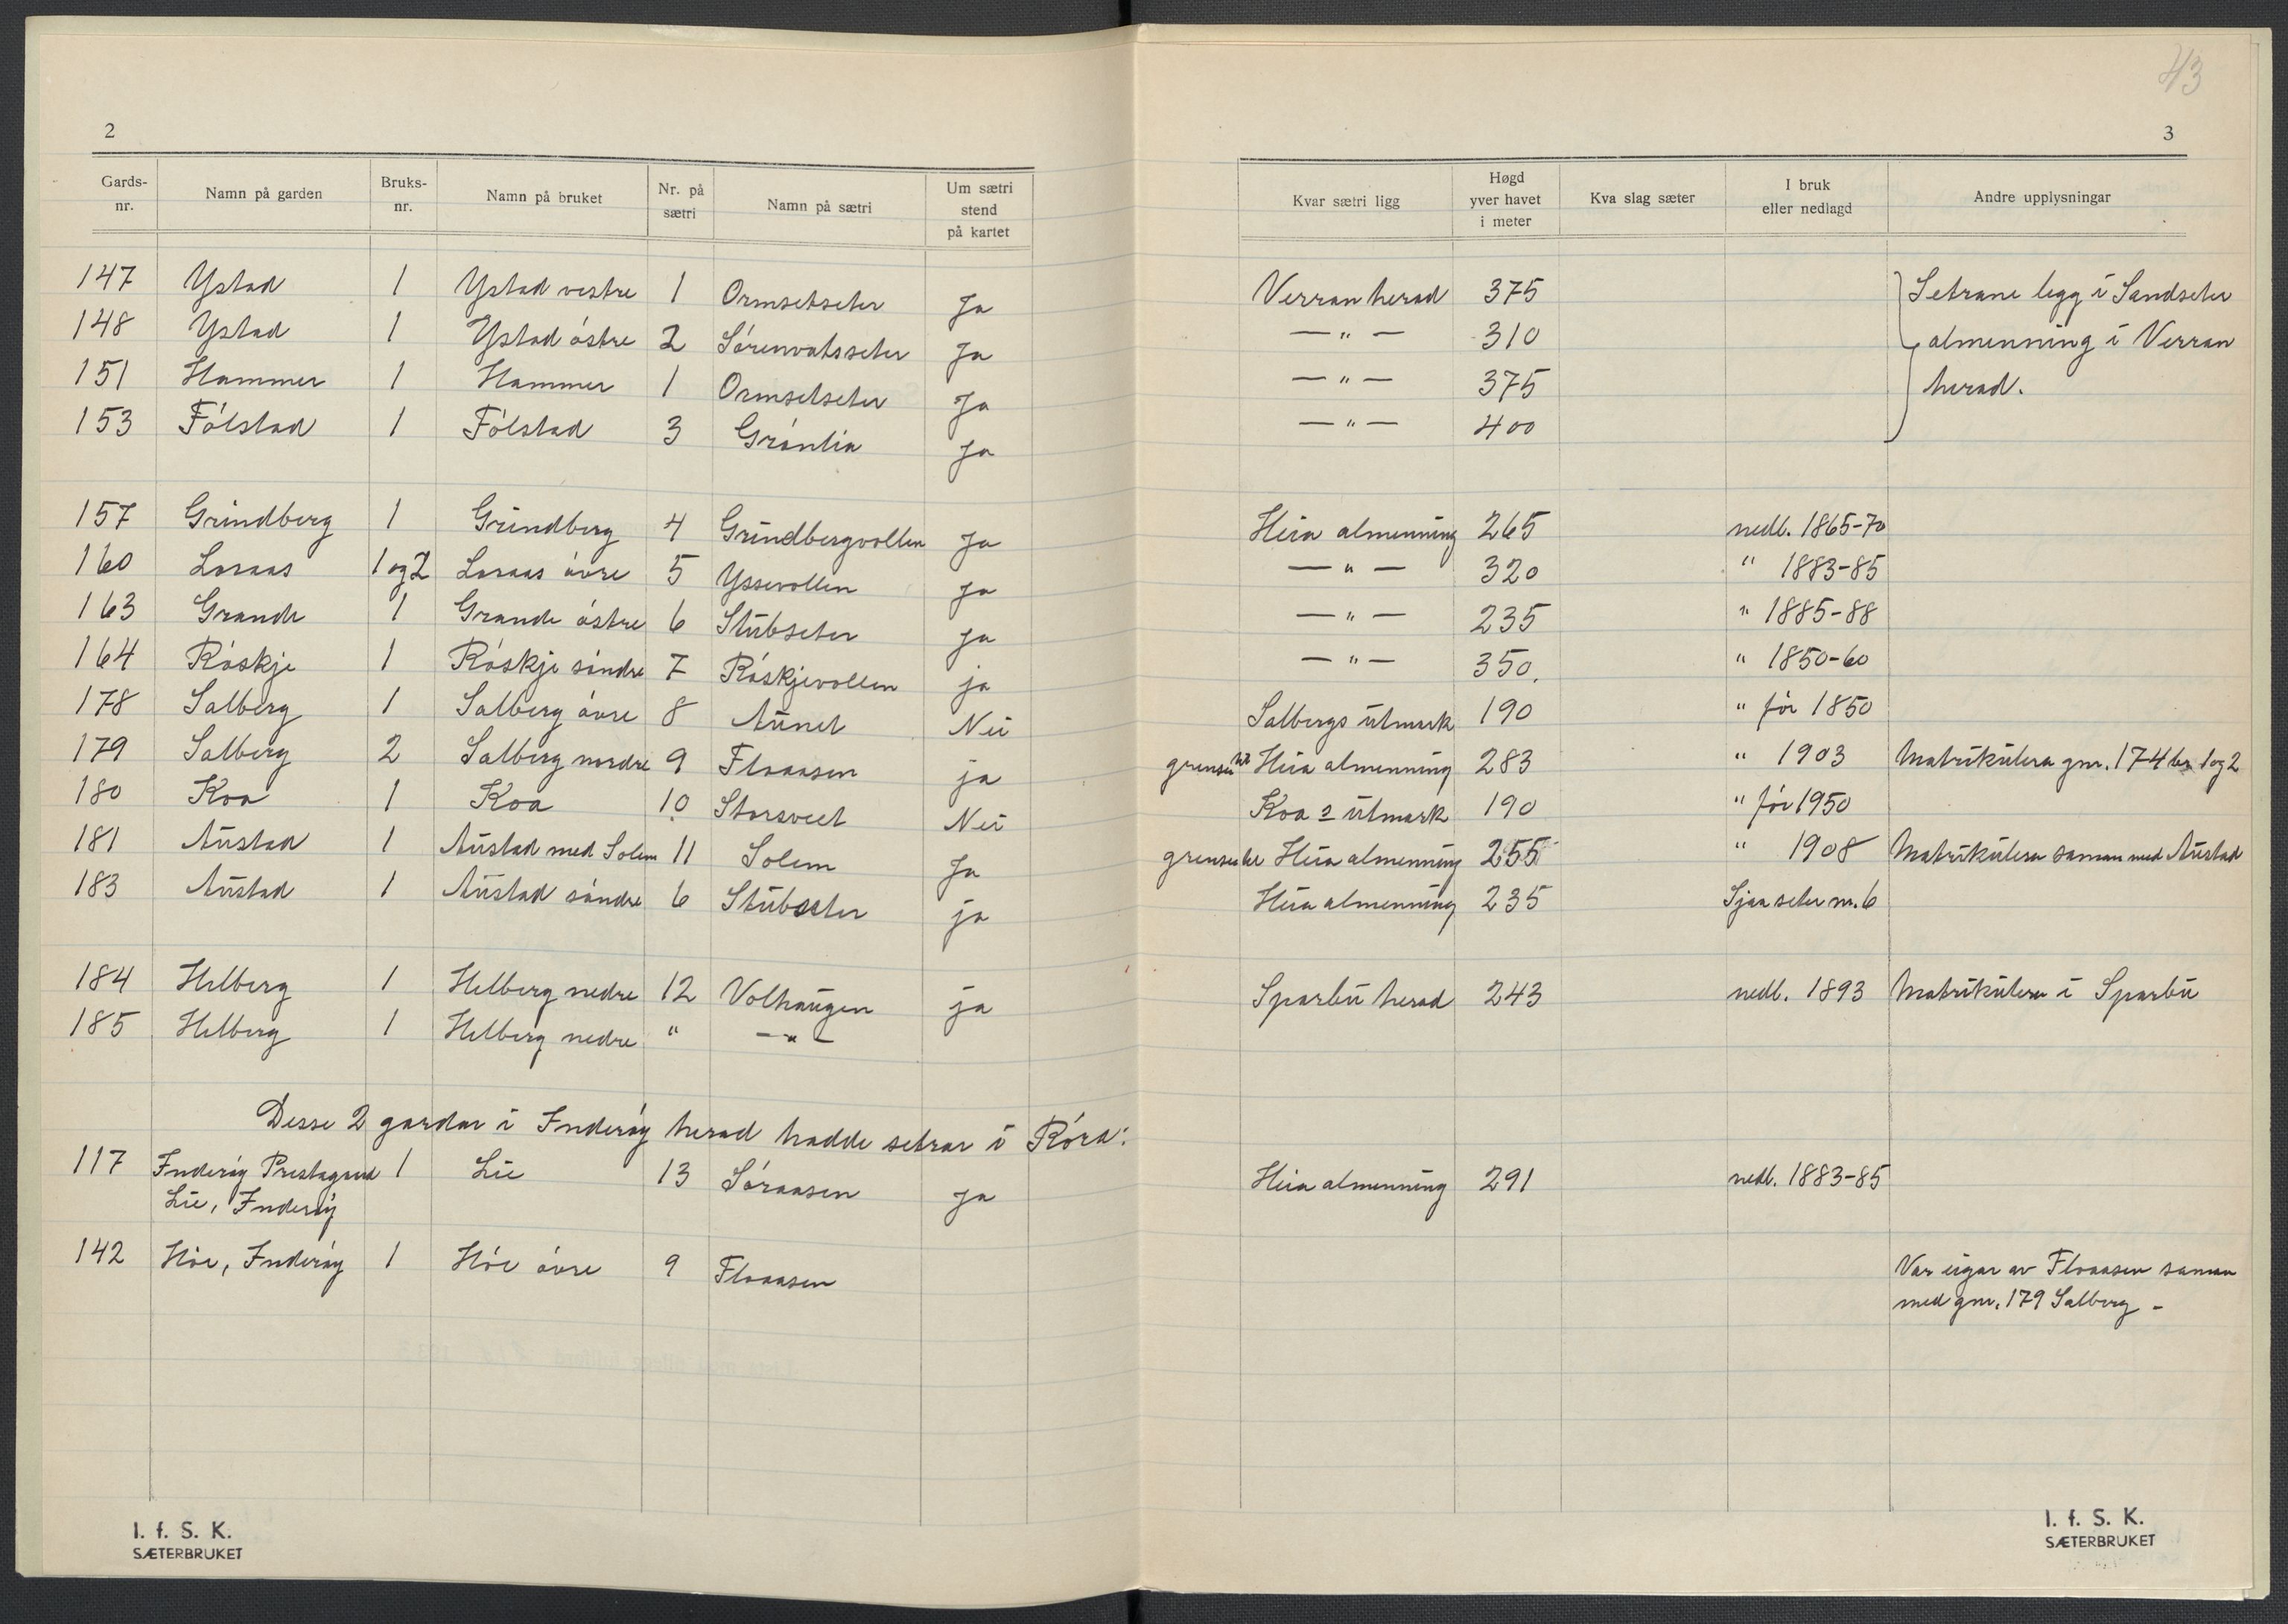 43
2
3
Gards-nr. Namn på garden Bruks-nr. Namn på bruket Nr. på sætri Namn på sætri Um sætri stend på kartet Kvar sætri ligg Høgd yver havet i meter Kva slag sæter I bruk eller nedlagd Andre upplysningar
147 Ystad 1 Ystad vestre 1 Ormsetseter Ja Verran herad 375 Setrane legg i Sandseter
148 Ystad 1 Ystad östre 2 Sörenvatsseter Ja — " — 310 almenning i Verran
151 Hammer 1 Hammer 1 Ormsetseter Ja — " — 375 herad.
153 Fölstad 1 Fölstad 3 Grönlia Ja — " — 400
157 Grindberg 1 Grindberg 4 Grindbergvollen Ja Heia almenning 265 nedl. 1865-70
160 Loraas 1 og 2 Loraas övre 5 Yssevollen Ja — " — 320 " 1883-85
163 Grande 1 Grande östre 6 Stubseter Ja — " — 235 " 1885-88
164 Röskje 1 Röskje söndre 7 Röskjevollen ja — " — 350. " 1850-60
178 Salberg 1 Salberg övre 8 Aunet Nei Salbergs utmark 190 " för 1850
179 Salberg 2 Salberg nordre 9 Floaasen ja grenser til Heia almenning 283 " 1903 Matrikulera gnr. 174 br 1 og 2
180 Koa 1 Koa 10 Storsveet Nei Koa s utmark 190 " för 1950
181 Austad 1 Austad med Solem 11 Solem Ja grenser til Heia almenning 255 " 1908 Matrikulera saman med Austad
183 Austad 1 Austad söndre 6 Stubseter ja Heia almenning 235 Sjaa seter nr. 6
184 Helberg 1 Helberg nedre 12 Volhaugen ja Sparbu herad 243 nedl. 1893 Matrikulera i Sparbu
185 Helberg 1 Helberg nedre " — " —
Desse 2 gardar i Inderöy herad hadde setrar i Röra:
117 Inderöy Prestagard 1 Lie 13 Söraasen Ja Heia almenning 291 nedl. 1883-85
Lie, Inderöy
142 Höe, Inderöy 1 Höe övre 9 Floaasen Var eigar av Floaasen saman
med gnr. 179 Salberg -
I. f. S. K.
SÆTERBRUKET
I. f. S. K.
SÆTERBRUKET